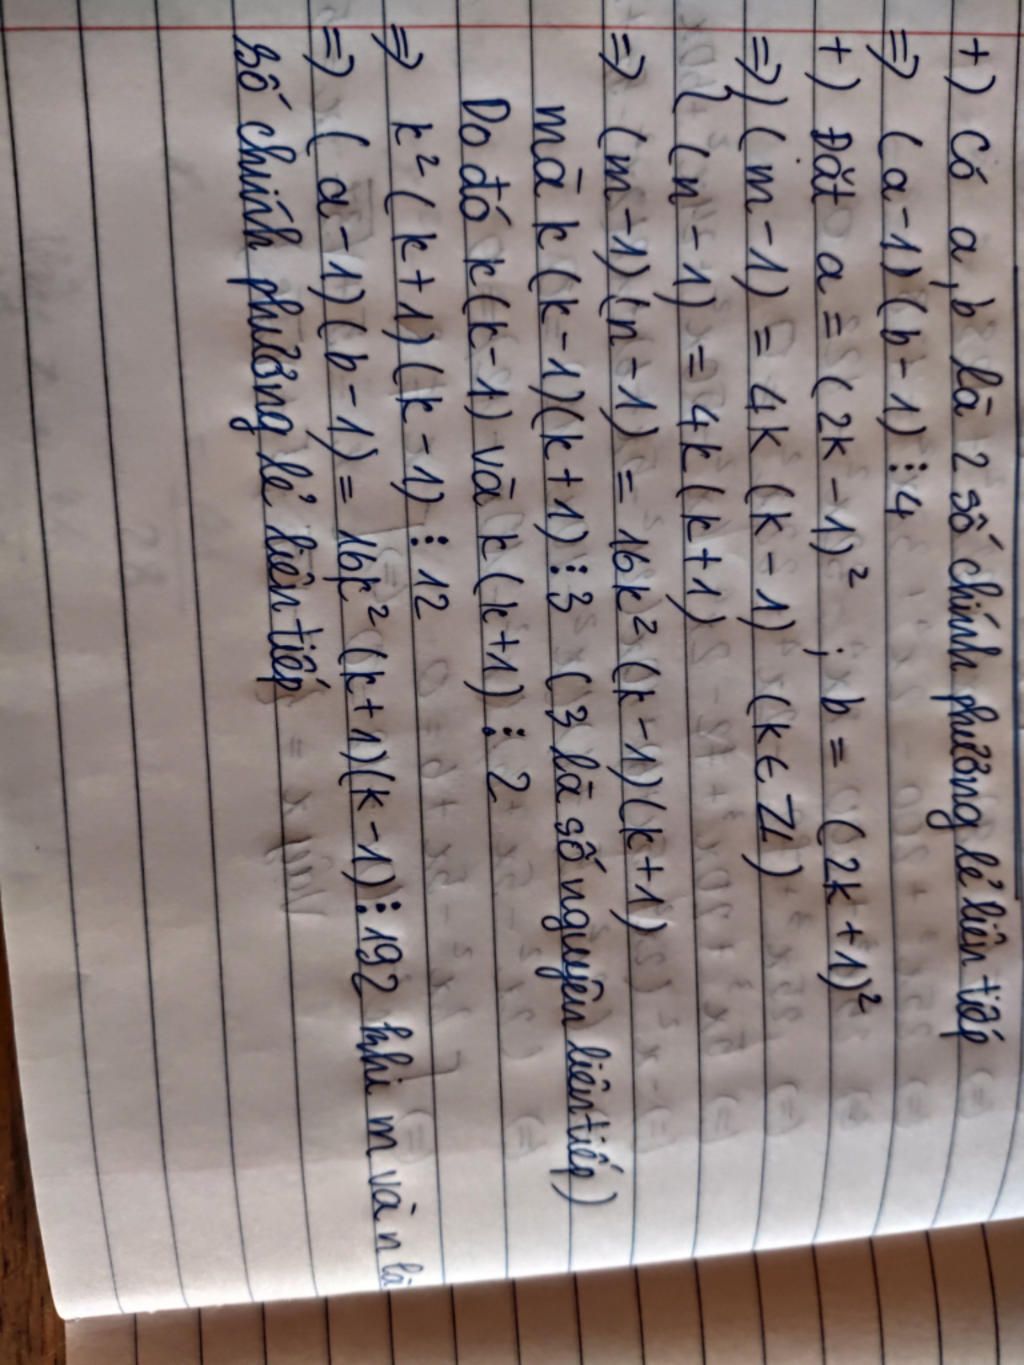 +) Có a, b là 2 số chính phương lẻ liên tiếp
=> (a-1)(b-1) ⋮ 4
+) Đặt a = (2k-1)² ; b = (2k+1)²
=> { (m-1) = 4k(k-1) (k ∈ Z)
{ (n-1) = 4k(k+1)
=> (m-1)(n-1) = 16k²(k-1)(k+1)
mà k(k-1)(k+1) ⋮ 3 (3 là số nguyên liên tiếp)
Do đó k(k-1) và k(k+1) ⋮ 2
=> k²(k+1)(k-1) ⋮ 12
=> (a-1)(b-1) = 16k²(k+1)(k-1) ⋮ 192 khi m và n là
số chính phương lẻ liên tiếp